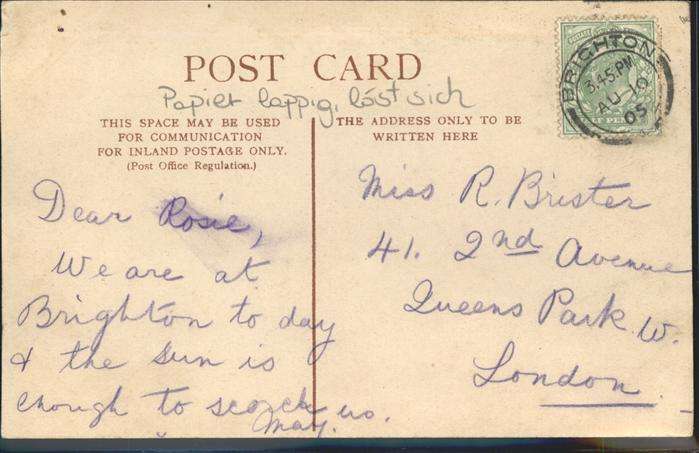 POST CARD
Papier lappig, löst sich
THIS SPACE MAY BE USED
FOR COMMUNICATION
FOR INLAND POSTAGE ONLY.
(Post Office Regulation.)
THE ADDRESS ONLY TO BE
WRITTEN HERE
BRIGHTON
3.45.PM
AU 10
05
Dear Rosie,
We are at
Brighton to day
& the sun is
enough to scorch us.
May.
Miss R. Brister
41. 2nd Avenue
Queens Park. W.
London.